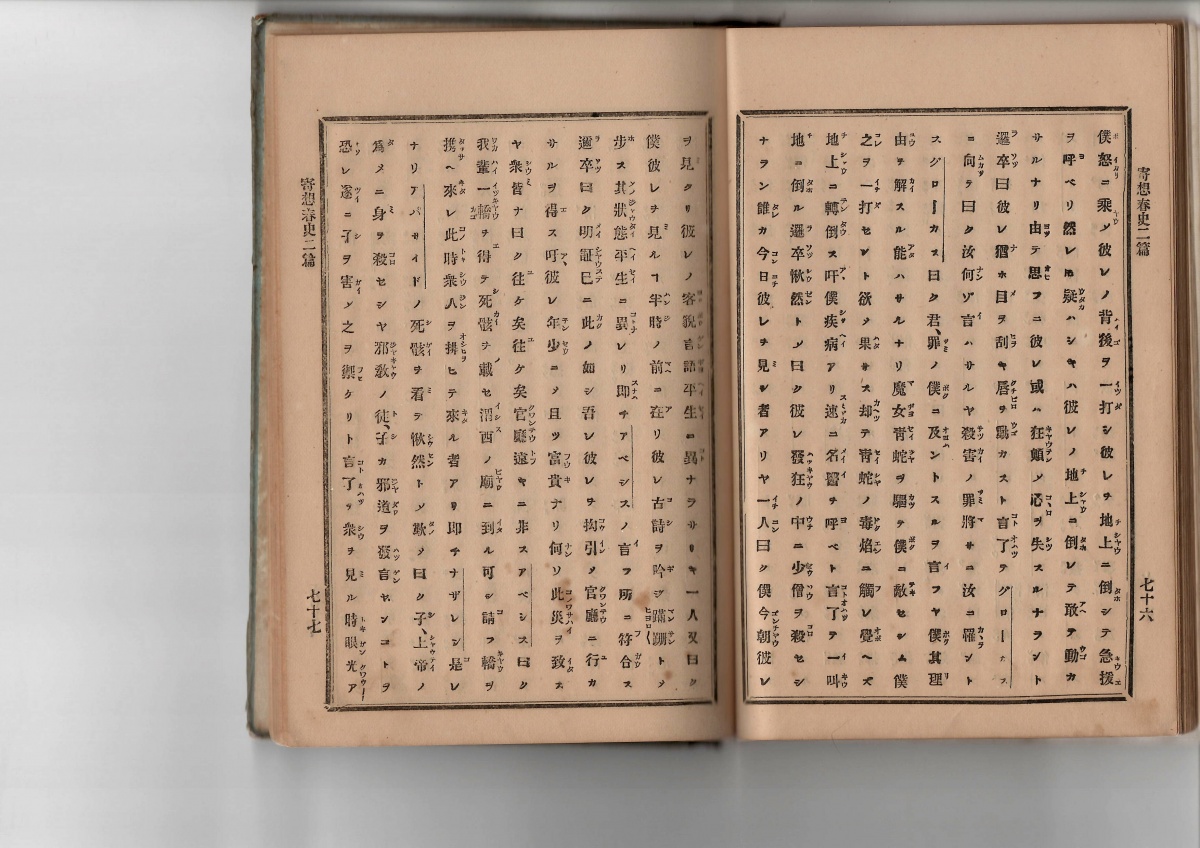 寄想春史二篇
僕怒ニ乘ソ彼レノ背後ヲ一打シ彼レヲ地上ニ倒シテ急援
ヲ呼ベリ然レ𪜈疑ハシキハ彼レノ地上ニ倒レテ敢テ動カ
サルナリ由テ思フニ彼レ或ハ狂顛ノ心ヲ失スルナラント
邏卒曰彼レ猶ホ目ヲ刮キ唇ヲ動カスト言了テグロース
ニ向テ曰ク汝何ゾ言ハサルヤ殺害ノ罪將サニ汝ニ罹ント
スグローカス曰ク君、罪ノ僕ニ及ントスルヲ言フヤ僕其理
由ヲ解スル能ハサルナリ魔女靑蛇ヲ驅テ僕ニ敵セシム僕
之ヲ一打セント欲メ果サス却テ靑蛇ノ毒焰ニ觸レ覺ヘズ
地上ニ轉倒ス吁僕疾病アリ速ニ名醫ヲ呼ベト言了テ一叫
地ニ倒ル邏卒愀然トメ曰ク彼レ發狂ノ中ニ少僧ヲ殺セシ
ナラン誰カ今日彼レヲ見シ者アリヤ一人曰ク僕今朝彼レ
七十六
ヲ見タリ彼レノ容貌言語平生ニ異ナラサリキ一人又曰ク
僕彼レヲ見ルヿ半時ノ前ニ在リ彼レ古詩ヲ吟ジ蹣跚トメ
步ス其狀態平生ニ異レリ卽チアベシスノ言フ所ニ符合ス
邏卒曰ク明証已ニ此ノ如シ吾レ彼レヲ拘引メ官廳ニ行カ
サルヲ得ス吁彼レ年少ニメ且ツ富貴ナリ何ソ此災ヲ致ス
ヤ衆皆ナ曰ク往ケ矣往ケ矣官廳遠キニ非スアベシス曰ク
我輩一轎ヲ得テ死骸ヲ載セ渭西ノ廟ニ到ル可シ請フ轎ヲ
携ヘ來レ此時衆人ヲ排ヒテ來ル者アリ卽チナザレン是レ
ナリアパサイドノ死骸ヲ看テ愀然トメ歎メ曰ク子、上帝ノ
爲メニ身ヲ殺セシヤ邪敎ノ徒、子カ邪道ヲ發言センコトヲ
恐レ遂ニ子ヲ害メ之ヲ禦ケリト言了テ衆ヲ見ル時眼光ア
寄想春史二篇
七十七